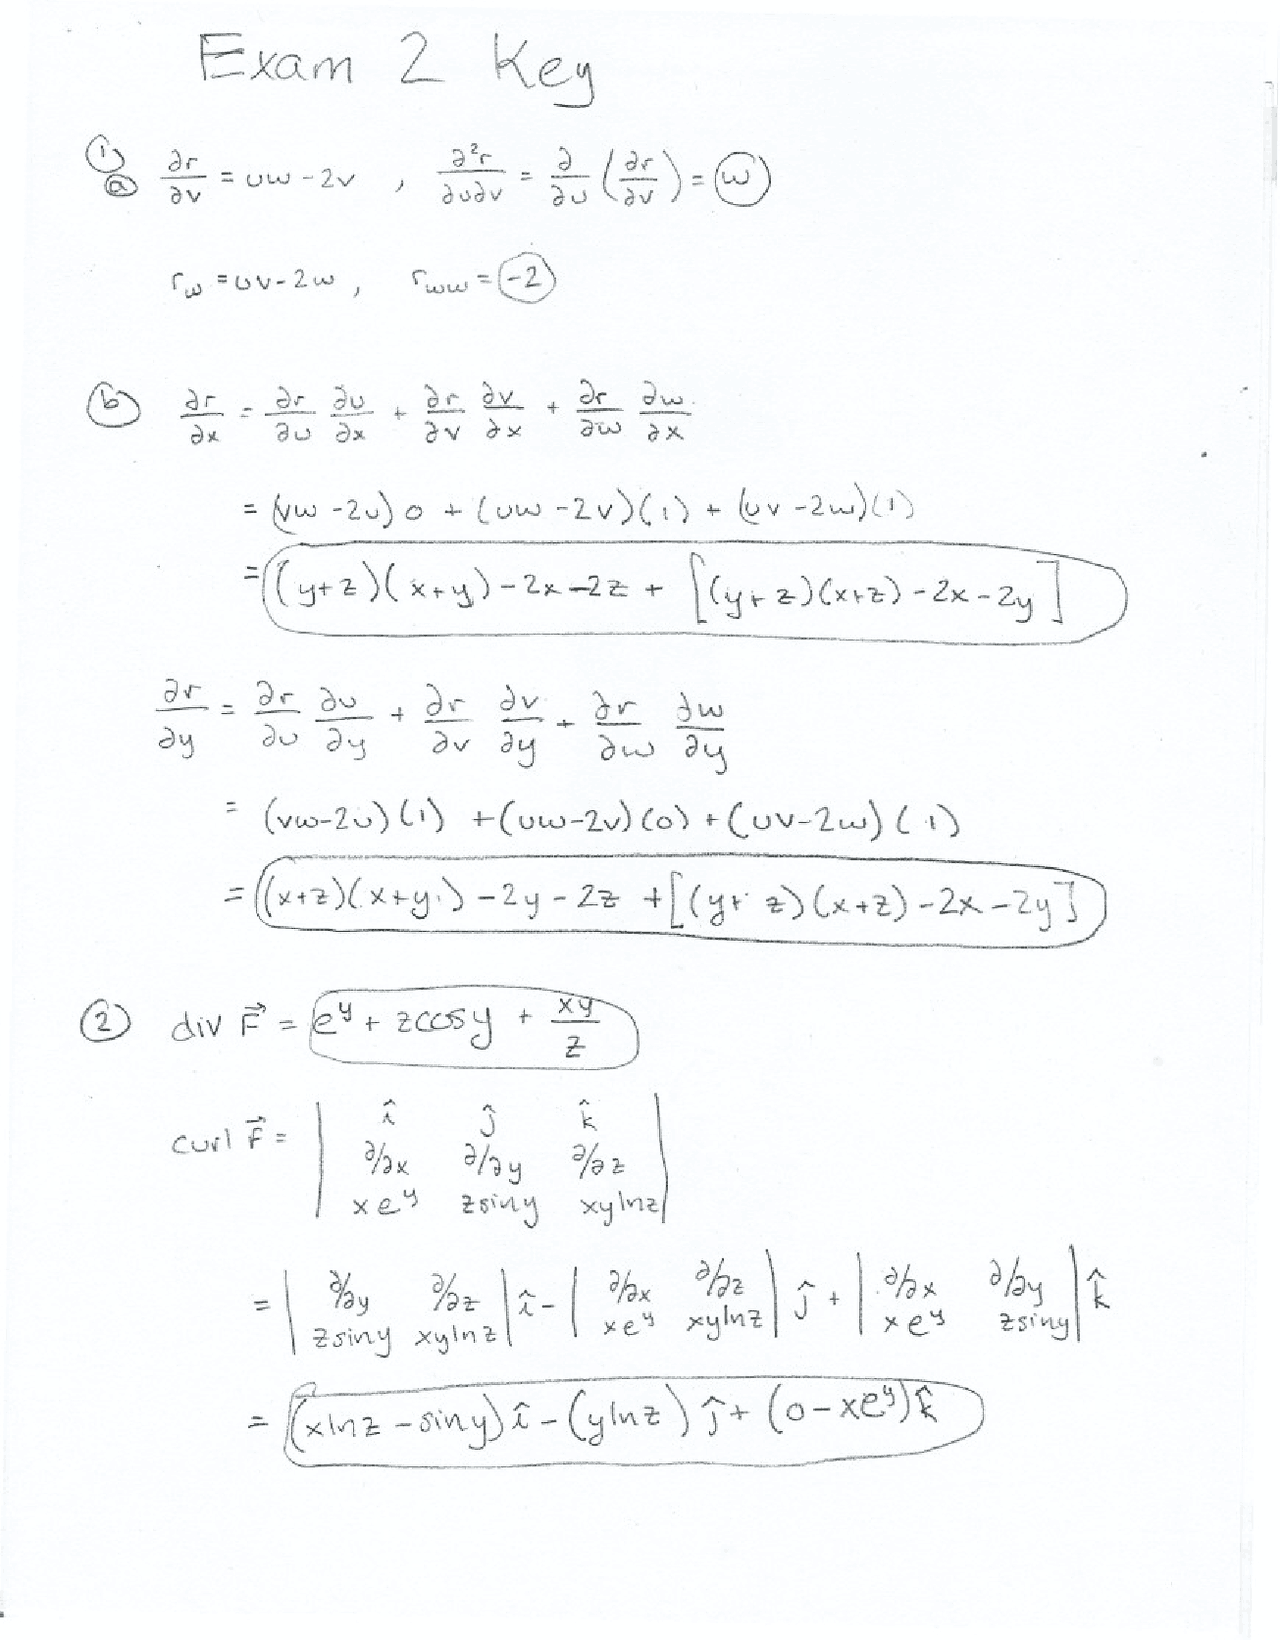 Exam 2 Key
① ⓐ ∂r/∂v = uw - 2v , ∂²r/∂u∂v = ∂/∂u (∂r/∂v) = w
r_w = uv - 2w , r_ww = -2
ⓑ ∂r/∂x = ∂r/∂u ∂u/∂x + ∂r/∂v ∂v/∂x + ∂r/∂w ∂w/∂x
= (vw - 2u) 0 + (uw - 2v)(1) + (uv - 2w)(1)
= (y+z)(x+y) - 2x - 2z + [(y+z)(x+z) - 2x - 2y]
∂r/∂y = ∂r/∂u ∂u/∂y + ∂r/∂v ∂v/∂y + ∂r/∂w ∂w/∂y
= (vw-2u)(1) + (uw-2v)(0) + (uv-2w)(1)
= (x+z)(x+y) - 2y - 2z + [(y+z)(x+z) - 2x - 2y]
② div F⃗ = e^y + zcosy + xy/z
curl F⃗ = | î ĵ k̂
∂/∂x ∂/∂y ∂/∂z
xe^y zsiny xylnz |
= | ∂/∂y ∂/∂z | î - | ∂/∂x ∂/∂z | ĵ + | ∂/∂x ∂/∂y | k̂
zsiny xylnz xe^y xylnz xe^y zsiny
= (xlnz - siny) î - (ylnz) ĵ + (0 - xe^y) k̂